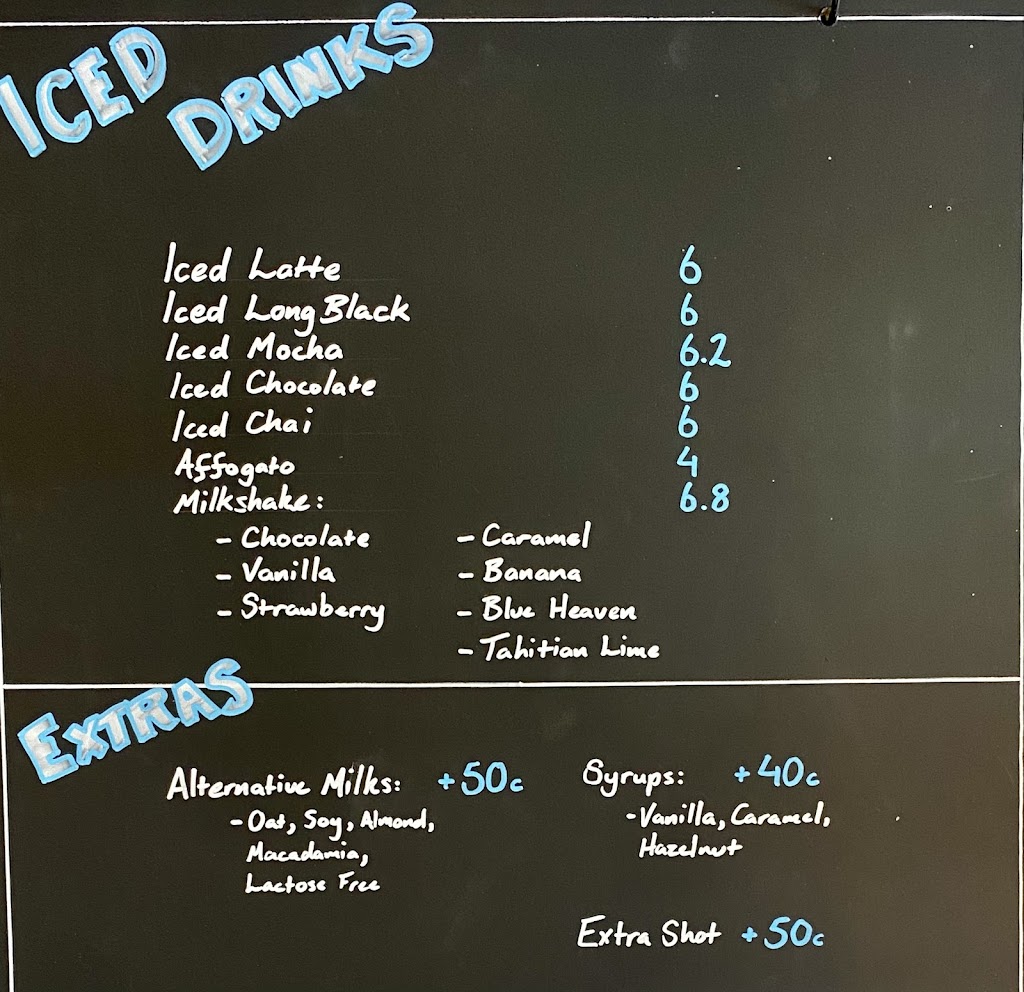 ICED DRINKS
Iced Latte 6
Iced Long Black 6
Iced Mocha 6.2
Iced Chocolate 6
Iced Chai 6
Affogato 4
Milkshake: 6.8
- Chocolate - Caramel
- Vanilla - Banana
- Strawberry - Blue Heaven
- Tahitian Lime
EXTRAS
Alternative Milks: +50c
- Oat, Soy, Almond,
Macadamia,
Lactose Free
Syrups: +40c
- Vanilla, Caramel,
Hazelnut
Extra Shot +50c